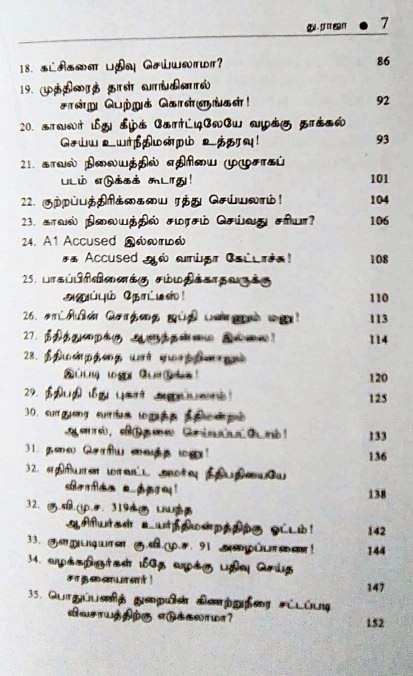 து.ராஜா ● 7
18. கட்சிகளை பதிவு செய்யலாமா? 86
19. முத்திரைத் தாள் வாங்கினால்
சான்று பெற்றுக் கொள்ளுங்கள்! 92
20. காவலர் மீது கீழ்க் கோர்ட்டிலேயே வழக்கு தாக்கல்
செய்ய உயர்நீதிமன்றம் உத்தரவு! 93
21. காவல் நிலையத்தில் எதிரியை முழுசாகப்
படம் எடுக்கக் கூடாது! 101
22. குற்றப்பத்திரிக்கையை ரத்து செய்யலாம்! 104
23. காவல் நிலையத்தில் சமரசம் செய்வது சரியா? 106
24. A1 Accused இல்லாமல்
சக Accused ஆல் வாய்தா கேட்டாச்சு! 108
25. பாகப்பிரிவினைக்கு சம்மதிக்காதவருக்கு
அனுப்பும் நோட்டீஸ்! 110
26. சாட்சியின் சொத்தை ஜப்தி பண்ணும் மனு! 113
27. நீதித்துறைக்கு ஆளுந்தன்மை இல்லை! 114
28. நீதிமன்றத்தை யார் ஏமாற்றினாலும்
இப்படி மனு போடுங்க! 120
29. நீதிபதி மீது புகார் அனுப்பலாம்! 125
30. வாதுரை வாங்க மறுத்த நீதிமன்றம்
ஆனால், விடுதலை செய்யப்பட்டோம்! 133
31. தலை சொரிய வைத்த மனு! 136
32. எதிரியான மாவட்ட அமர்வு நீதிபதியையே
விசாரிக்க உத்தரவு! 138
32. கு.வி.மு.ச. 319க்கு பயந்த
ஆசிரியர்கள் உயர்நீதிமன்றத்திற்கு ஓட்டம்! 142
33. குளறுபடியான கு.வி.மு.ச. 91 அழைப்பாணை! 144
34. வழக்கறிஞர்கள் மீதே வழக்கு பதிவு செய்த
சாதனையாளர்! 147
35. பொதுப்பணித் துறையின் கிணற்றுநீரை சட்டப்படி
விவசாயத்திற்கு எடுக்கலாமா? 152